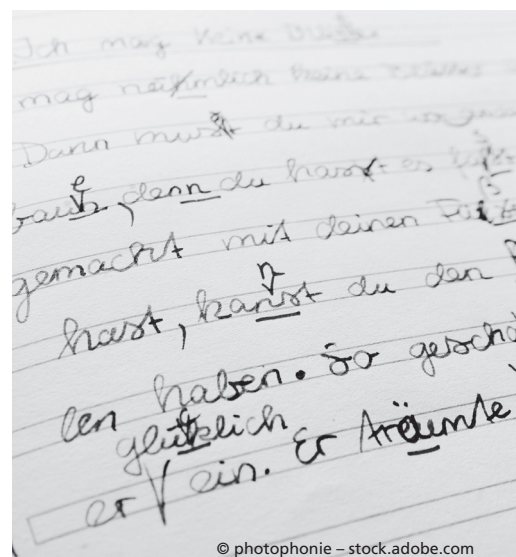 Ich mag keine
mag nähmlich keine
Dann must du mir
denn du hast es
gemacht mit deinen
hast, kannst du den
len haben. So
glücklich
er ein. Er träumte
© photophonie – stock.adobe.com